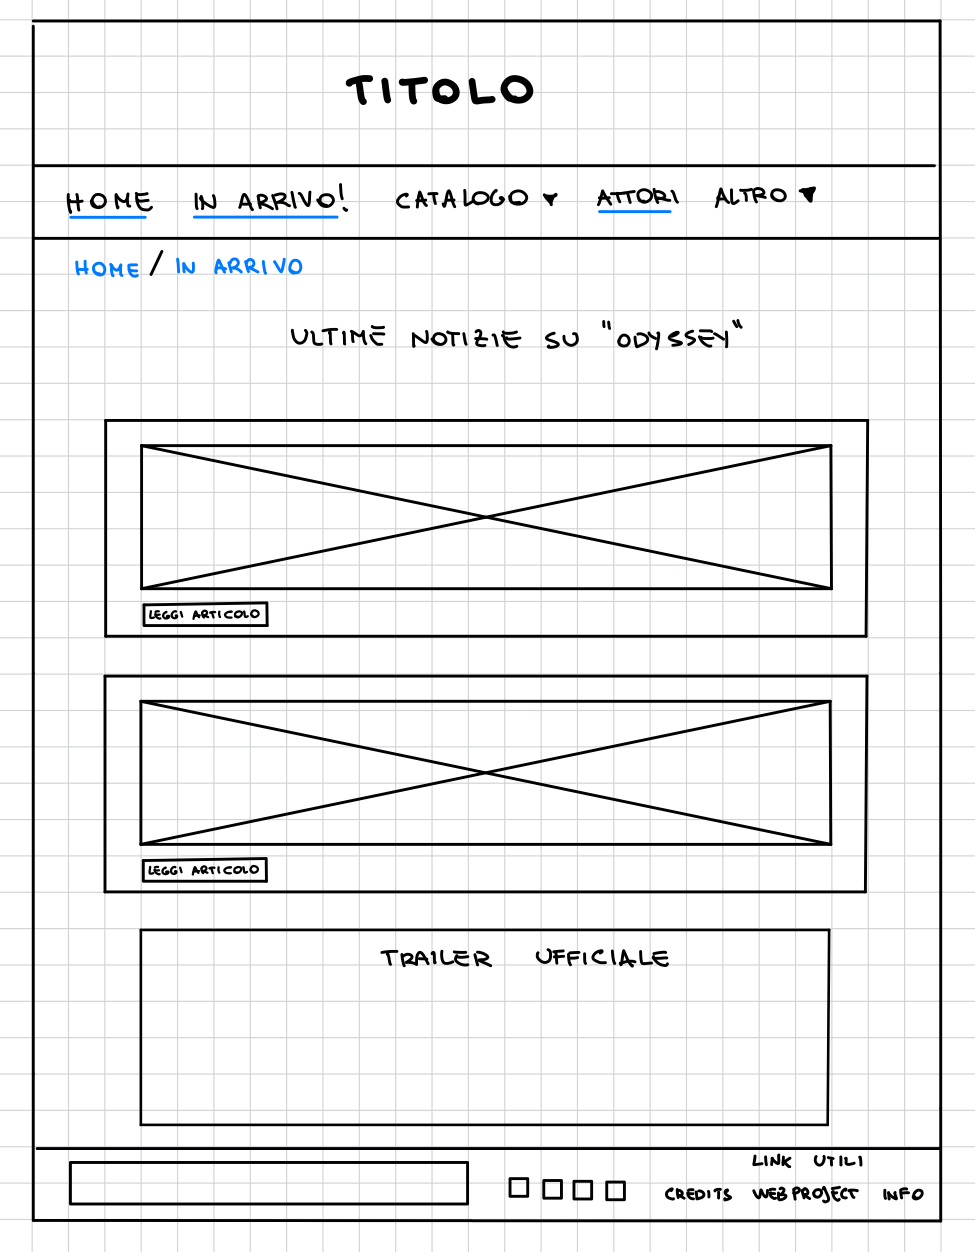 TITOLO
HOME IN ARRIVO! CATALOGO ▼ ATTORI ALTRO ▼
HOME / IN ARRIVO
ULTIME NOTIZIE SU "ODYSSEY"
LEGGI ARTICOLO
LEGGI ARTICOLO
TRAILER UFFICIALE
LINK UTILI
CREDITS WEB PROJECT INFO